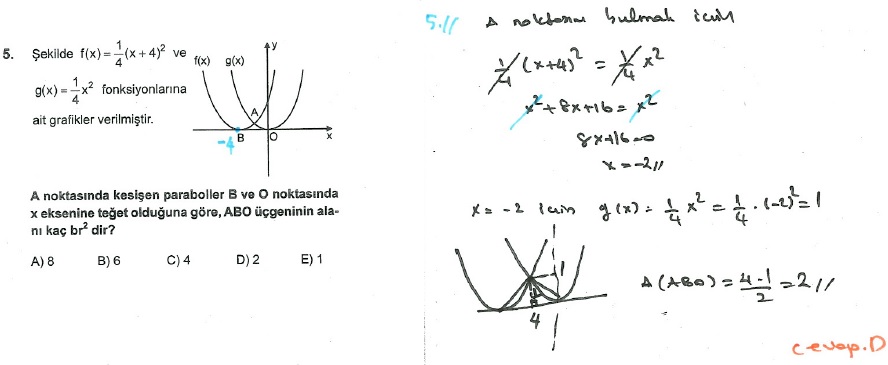 5. Şekilde f(x) = 1/4 (x + 4)² ve
g(x) = 1/4 x² fonksiyonlarına
ait grafikler verilmiştir.
f(x) g(x) y
A
-4 B O x
A noktasında kesişen paraboller B ve O noktasında
x eksenine teğet olduğuna göre, ABO üçgeninin ala-
nı kaç br² dir?
A) 8 B) 6 C) 4 D) 2 E) 1
5.//
A noktasını bulmak için
1/4 (x+4)² = 1/4 x²
x² + 8x + 16 = x²
8x+16=0
x = -2//
x = -2 için g(x) = 1/4 x² = 1/4 . (-2)² = 1
1
4
A(ABO) = 4.1/2 = 2 //
cevap.D